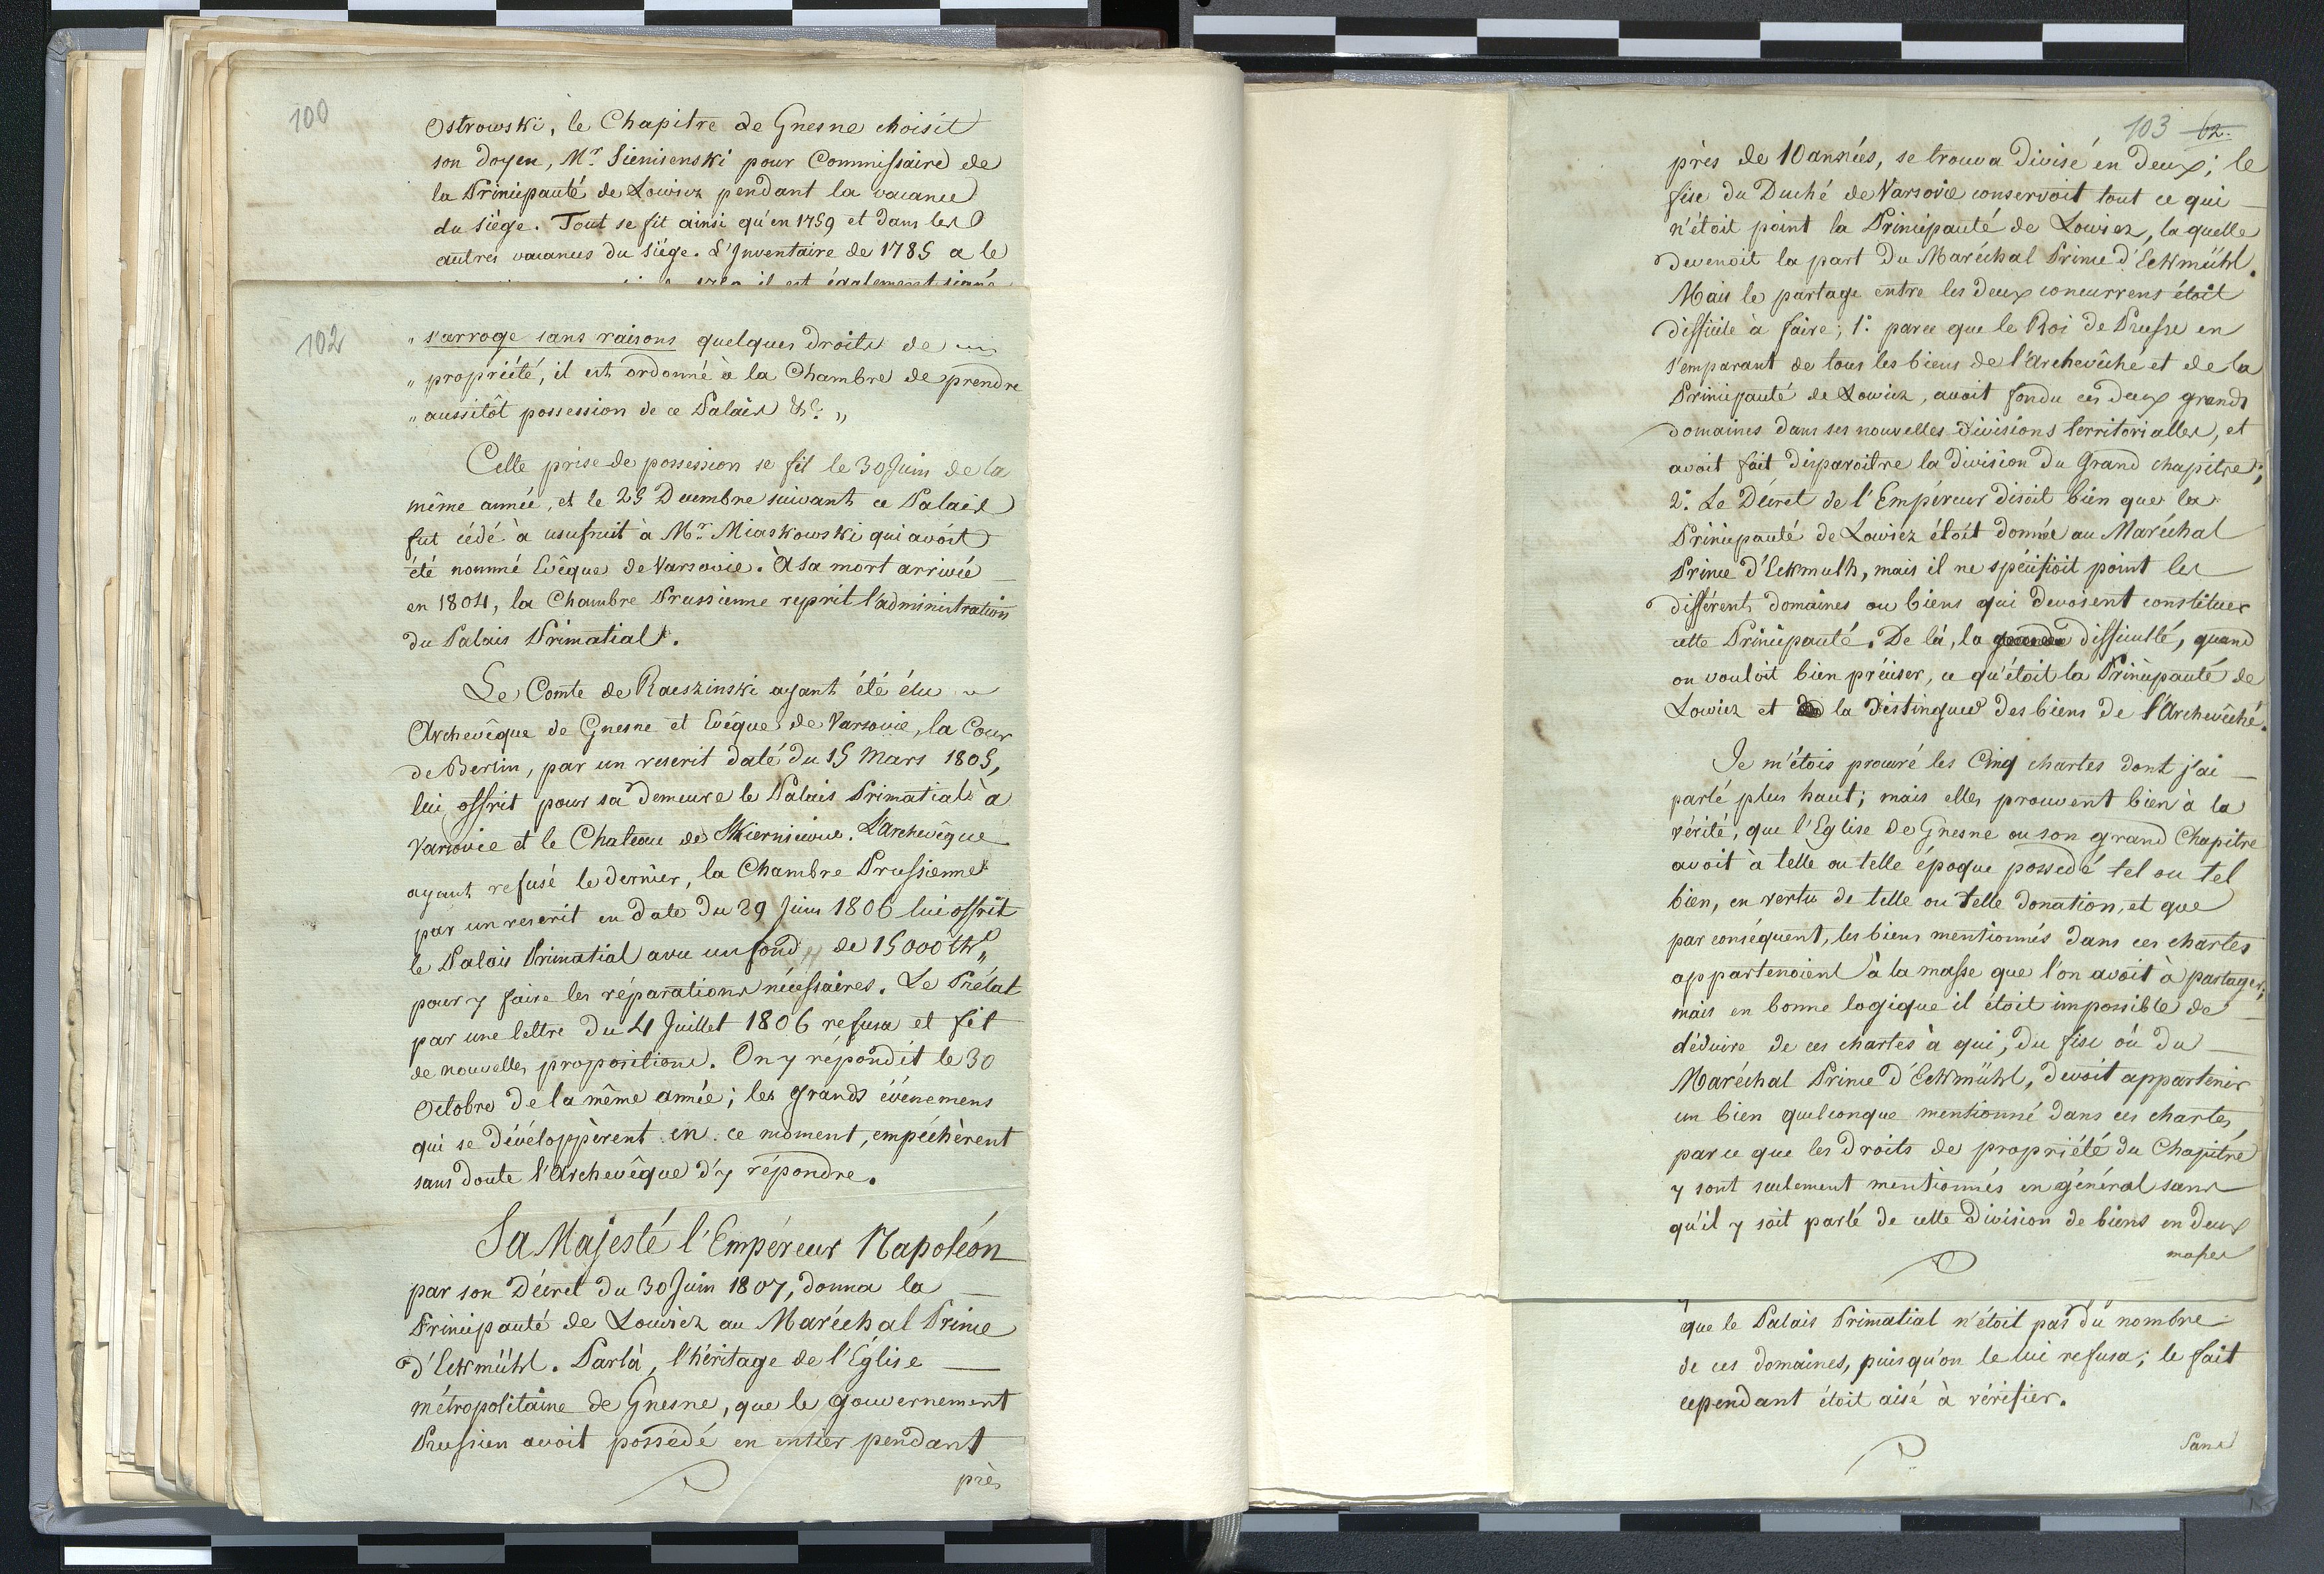 100
Ostrowski, le Chapitre de Gnesne choisit
son doyen, Mr. Siemisenski pour Commissaire de
la Principauté de Lowicz pendant la vacance
du siège. Tout se fit ainsi qu'en 1759 et dans les
autres vacances du siège. L'Inventaire de 1785 a le
il est également signé
102
„ s'arroge sans raisons quelques droits de
„ propriété, il est ordonné à la Chambre de prendre
„ aussitôt possession de ce Palais &c. „
Cette prise de possession se fit le 30 Juin de la
même année, et le 25 Decembre suivant ce Palais
fut cédé à usufruit à Mr. Miaskowski qui avoit
été nommé Evêque de Varsovie. À sa mort arrivée
en 1804, la Chambre Prussienne reprit l'administration
du Palais Primatial.
Le Comte de Raeszinski ayant été élu
Archevêque de Gnesne et Evêque de Varsovie, la Cour
de Berlin, par un rescrit daté du 15 Mars 1805,
lui offrit pour sa demeure le Palais Primatial à
Varsovie et le Chateau de Skierniewice. L'Archevêque
ayant refusé le dernier, la Chambre Prussienne
par un rescrit en date du 29 Juin 1806 lui offrit
le Palais Primatial avec un fond de 15000 th
pour y faire les réparations nécessaires. Le Prélat
par une lettre du 4 Juillet 1806 refusa et fit
de nouvelles propositions. On y répondit le 30
Octobre de la même année; les grands évènemens
qui se dévéloppèrent en ce moment, empéchèrent
sans doute l'Archevêque d'y répondre.
Sa Majesté l'Empéreur Napoléon
par son Décret du 30 Juin 1807, donna la
Principauté de Lowicz au Maréchal Prince
d'Eckmühl. Par là, l'héritage de l'Église
métropolitaine de Gnesne, que le gouvernement
Prussien avoit possédé en entier pendant
près
103 62.
près de 10 années, se trouva divisé en deux; le
fisc du Duché de Varsovie conservoit tout ce qui
n'étoit point la Principauté de Lowicz, laquelle
devenoit la part du Maréchal Prince d'Eckmühl.
Mais le partage entre les deux concurrens étoit
difficile à faire; 1°. parce que le Roi de Prusse en
s'emparant de tous les biens de l'Archevêché et de la
Principauté de Lowicz, avoit fondu ces deux grands
domaines dans ses nouvelles divisions territorialles, et
avoit fait disparoitre la division du Grand chapitre;
2°. Le Décret de l'Empéreur disoit bien que la
Principauté de Lowicz étoit donnée au Maréchal
Prince d'Eckmulh, mais il ne spécifioit point les
différents domaines ou biens qui devoient constituer
cette Principauté. De là, la grande difficulté, quand
on vouloit bien préciser, ce qu'étoit la Principauté de
Lowicz et la distinguer des biens de l'Archevêché.
Je m'étois procuré les Cinq chartes dont j'ai
parlé plus haut; mais elles prouvent bien à la
vérité, que l'Eglise de Gnesne ou son grand Chapitre
avoit à telle ou telle époque possedé tel ou tel
bien, en vertu de telle ou telle donation, et que
par conséquent, les biens mentionnés dans ces chartes
appartenoient à la masse que l'on avoit à partager;
mais en bonne logique il étoit impossible de
déduire de ces chartes à qui, du fisc où du
Maréchal Prince d'Eckmühl, devoit appartenir
un bien quelconque mentionné dans ces chartes,
parce que les droits de propriété du Chapitre
y sont seulement mentionnés en général sans
qu'il y soit parlé de cette division de biens en deux
masses
que le Palais Primatial n'étoit pas du nombre
de ces domaines, puisqu'on le lui refusa; le fait
cependant étoit aisé à vérifier.
Sans